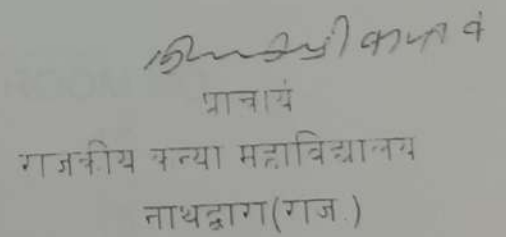 प्राचार्य
राजकीय कन्या महाविद्यालय
नाथद्वारा(राज.)